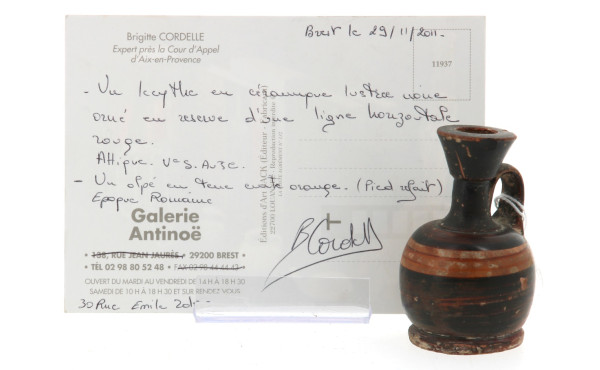 Brigitte CORDELLE
Expert près la Cour d'Appel
d'Aix-en-Provence
Brest le 29/11/2011.
11937
- Un lecythe en céramique lustrée noire
orné en reserve d'une ligne horizontale
rouge.
Attique. V° S. Av JC.
- Un olpé en terre cuite orange. (Pied refait)
Epoque Romaine
Galerie
Antinoë
138, RUE JEAN JAURÈS • 29200 BREST •
• TÉL 02 98 80 52 48 • FAX 02 98 44 44 43
OUVERT DU MARDI AU VENDREDI DE 14 H À 18 H 30
SAMEDI DE 10 H À 18 H 30 ET SUR RENDEZ-VOUS
30 Rue Emile Zola
BCordell
Editions d'Art JACK (Editeur - Fabricant)